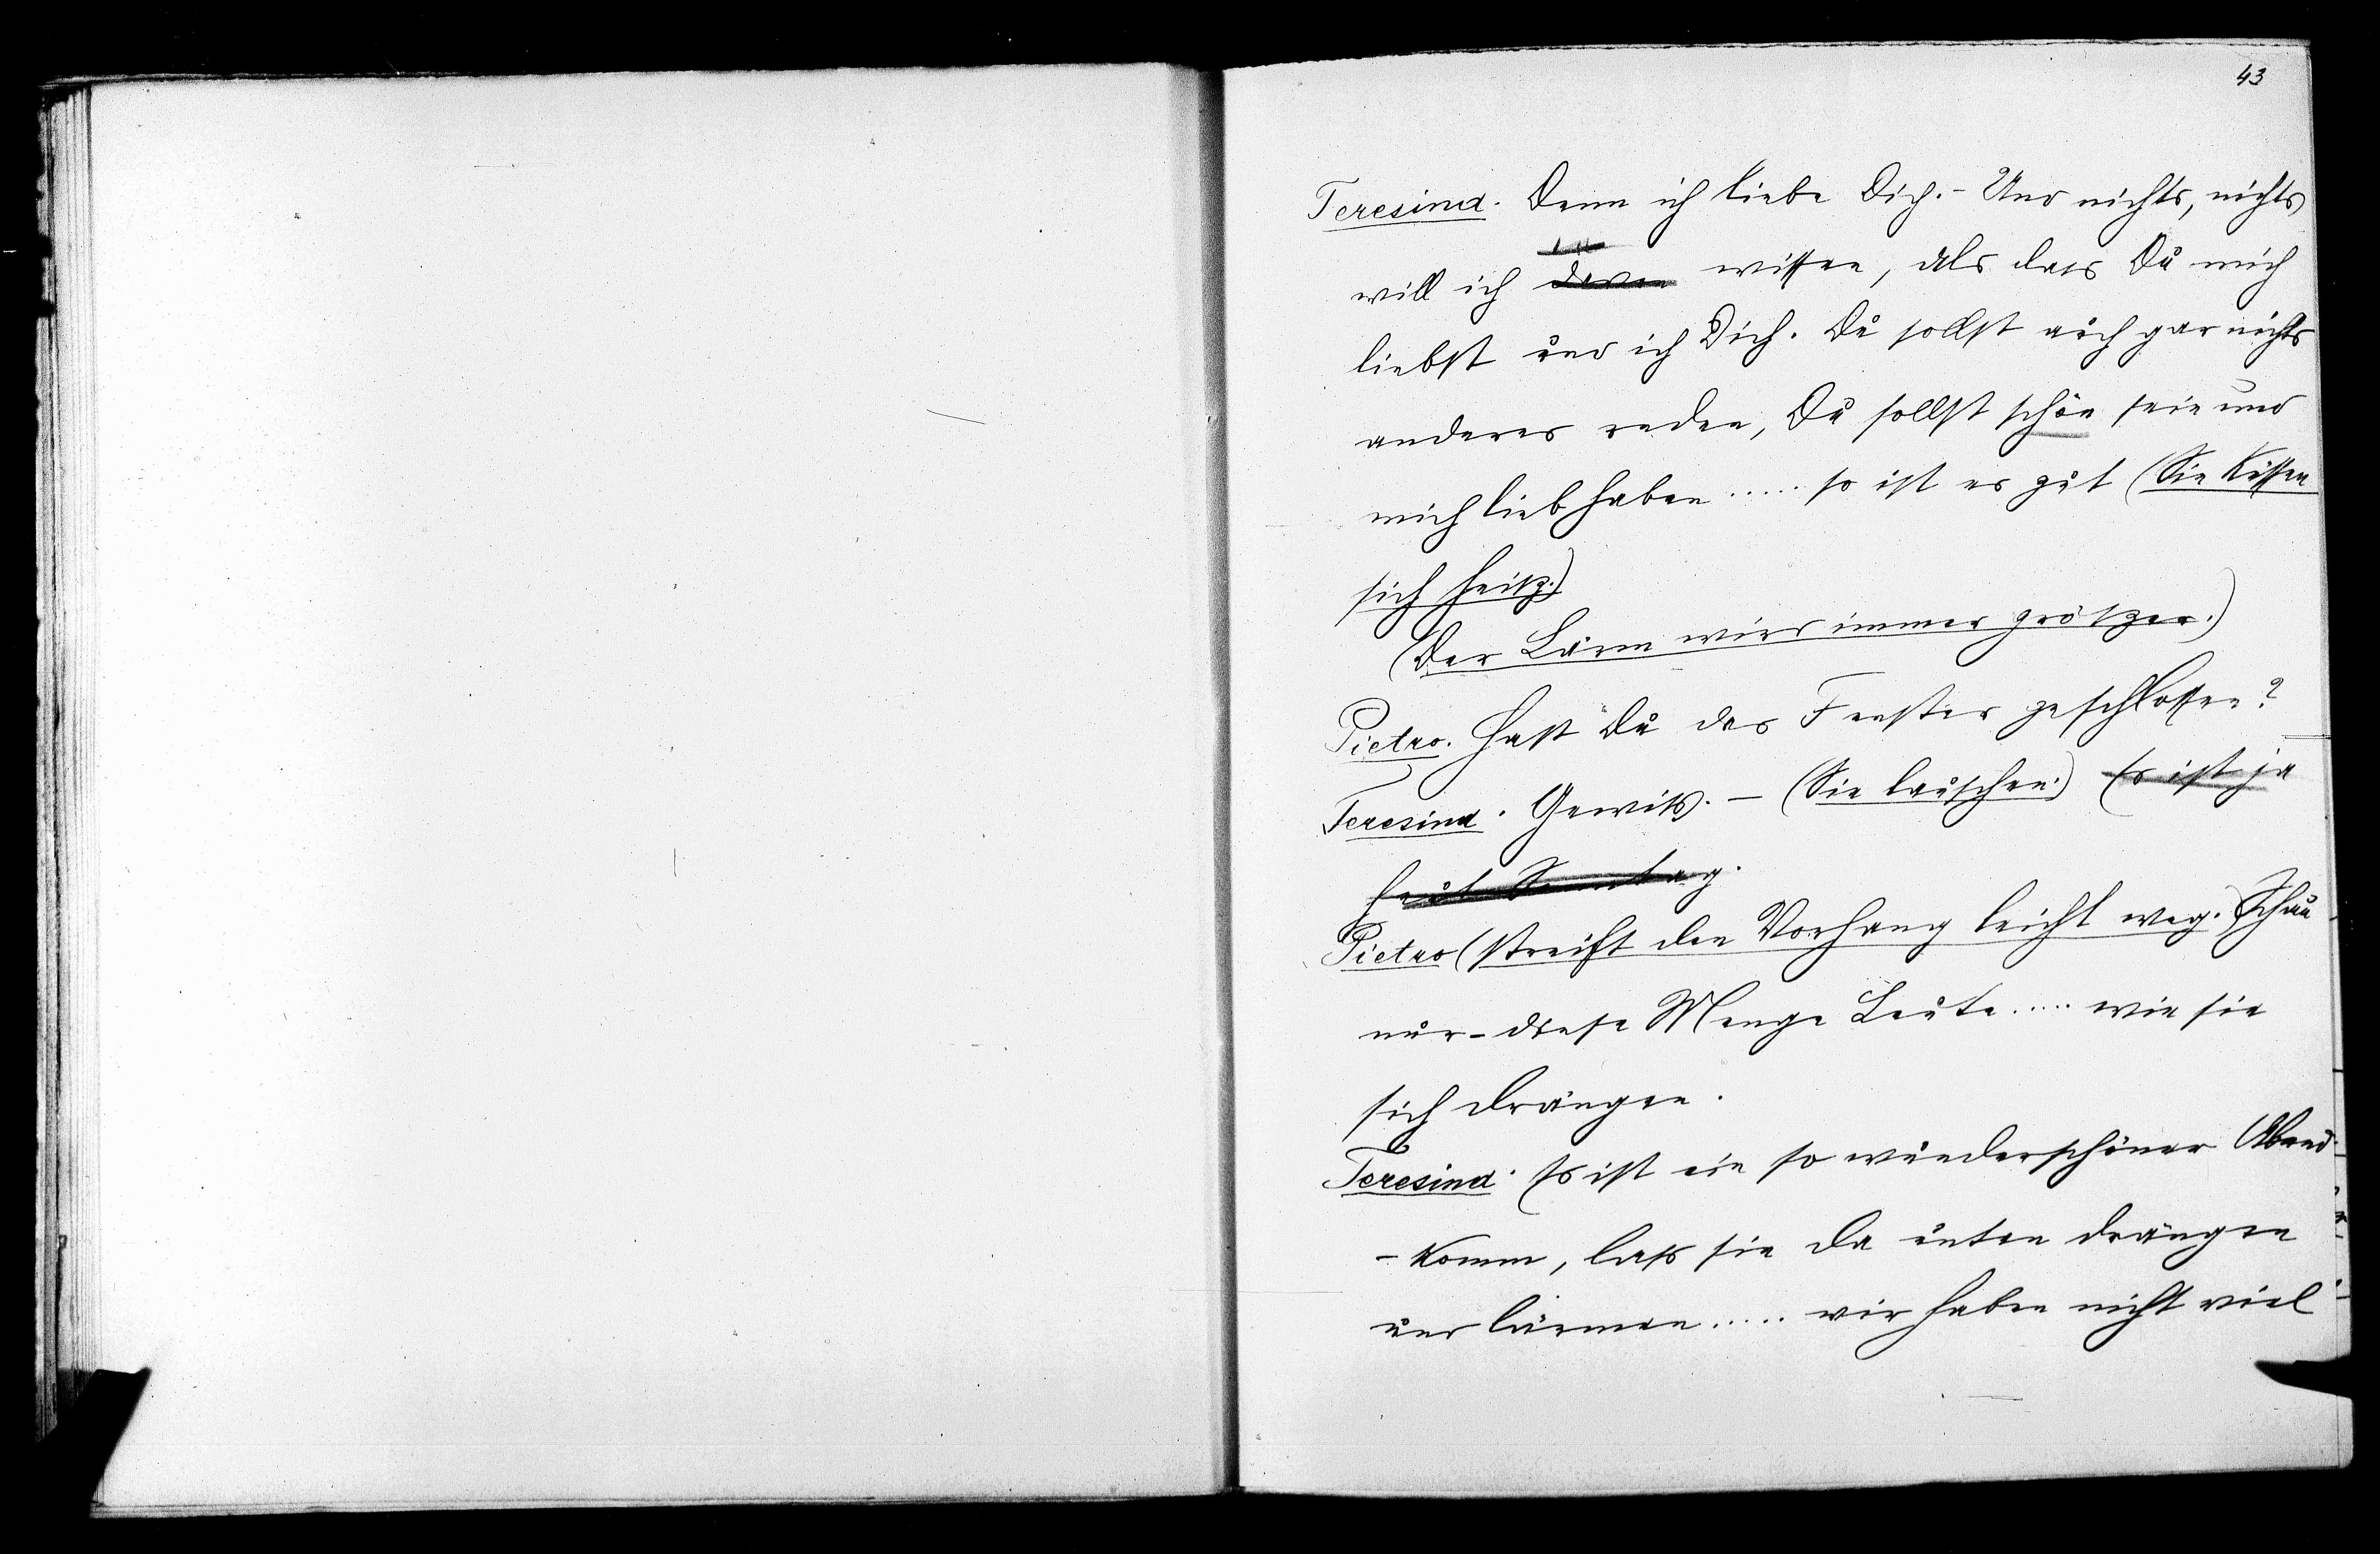 43
Teresina. Denn ich liebe Dich. - Und nichts, nichts
will ich davon wissen, als dass Du mich
liebst und ich Dich. Du sollst auch gar nichts
anderes reden, Du sollst schön sein und
mich lieb haben ..... so ist es gut (Sie küssen
sich heiß.)
(Der Lärm wird immer größer.)
Pietro. Hast Du das Fenster geschlossen?
Teresina. Gewiß. - (Sie lauschen.) Es ist ja
heut Sonntag.
Pietro (streift den Vorhang leicht weg.) Schau
nur - diese Menge Leute ..... wie sie
sich drängen.
Teresina. Es ist ein so wunderschöner Abend
- Komm, laß sie da unten drängen
und lärmen ..... wir haben nicht viel